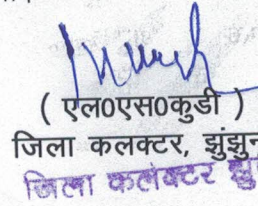 ( एल0एस0कुडी )
जिला कलक्टर, झुंझुन
जिला कलेक्टर झु